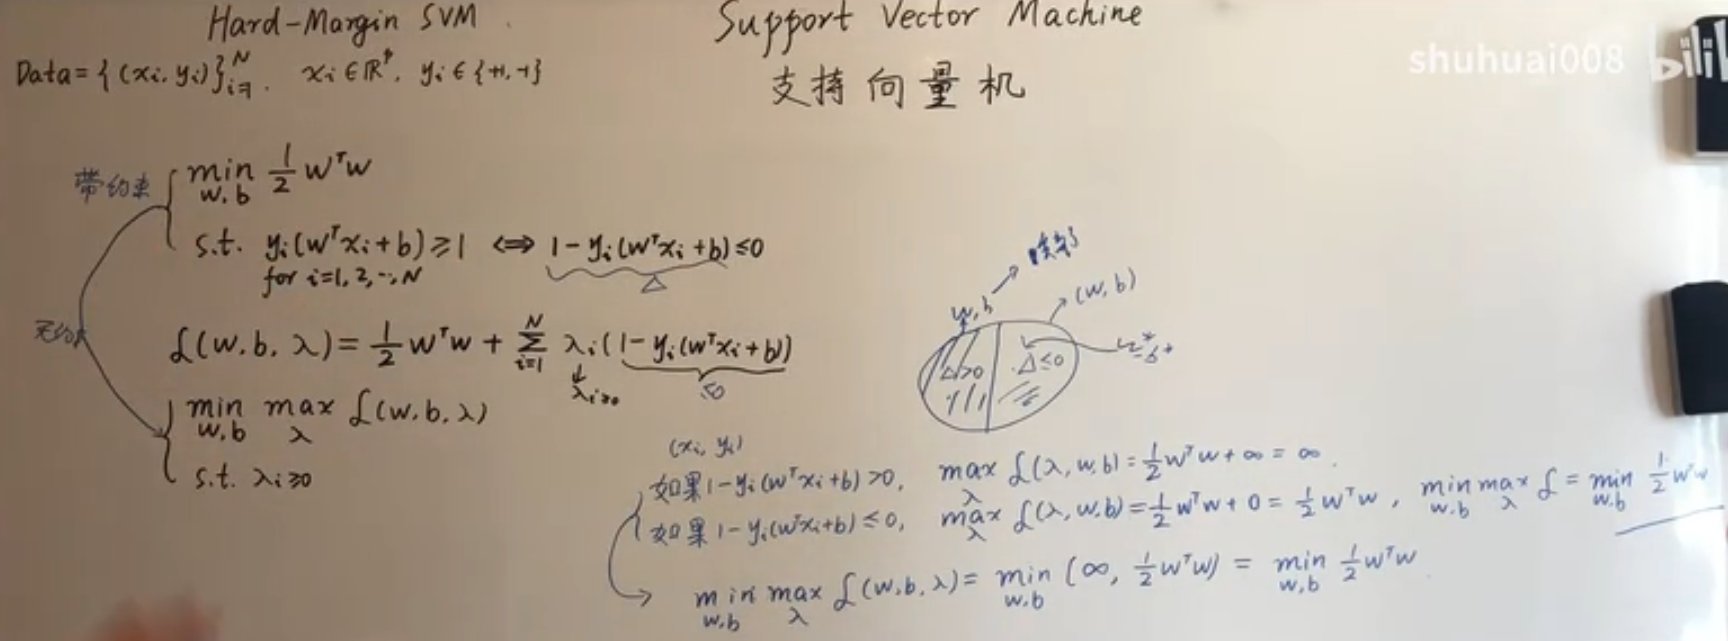 Hard-Margin SVM
Support Vector Machine
支持向量机
shuhuai008 bili
Data = {(xᵢ, yᵢ)}ᵢ₌₁ᴺ, xᵢ ∈ ℝᵖ, yᵢ ∈ {+1, -1}
带约束
min_{w,b} 1/2 wᵀw
s.t. yᵢ(wᵀxᵢ+b) ≥ 1 ⟺ 1 - yᵢ(wᵀxᵢ+b) ≤ 0
for i=1, 2, …, N
△
无约束
ℒ(w, b, λ) = 1/2 wᵀw + Σ_{i=1}^{N} λᵢ(1 - yᵢ(wᵀxᵢ+b))
λᵢ≥0
≤0
min_{w,b} max_λ ℒ(w, b, λ)
s.t. λᵢ ≥ 0
w, b
(w, b)
△>0
△≤0
(xᵢ, yᵢ)
如果 1 - yᵢ(wᵀxᵢ+b) > 0, max_λ ℒ(λ, w, b) = 1/2 wᵀw + ∞ = ∞.
如果 1 - yᵢ(wᵀxᵢ+b) ≤ 0, max_λ ℒ(λ, w, b) = 1/2 wᵀw + 0 = 1/2 wᵀw, min_{w,b} max_λ ℒ = min_{w,b} 1/2 wᵀw
min_{w,b} max_λ ℒ(w, b, λ) = min_{w,b} (∞, 1/2 wᵀw) = min_{w,b} 1/2 wᵀw